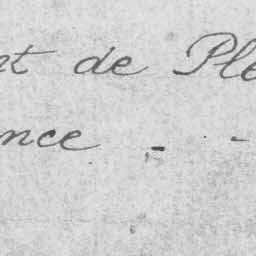 nt de Ple
nce - -